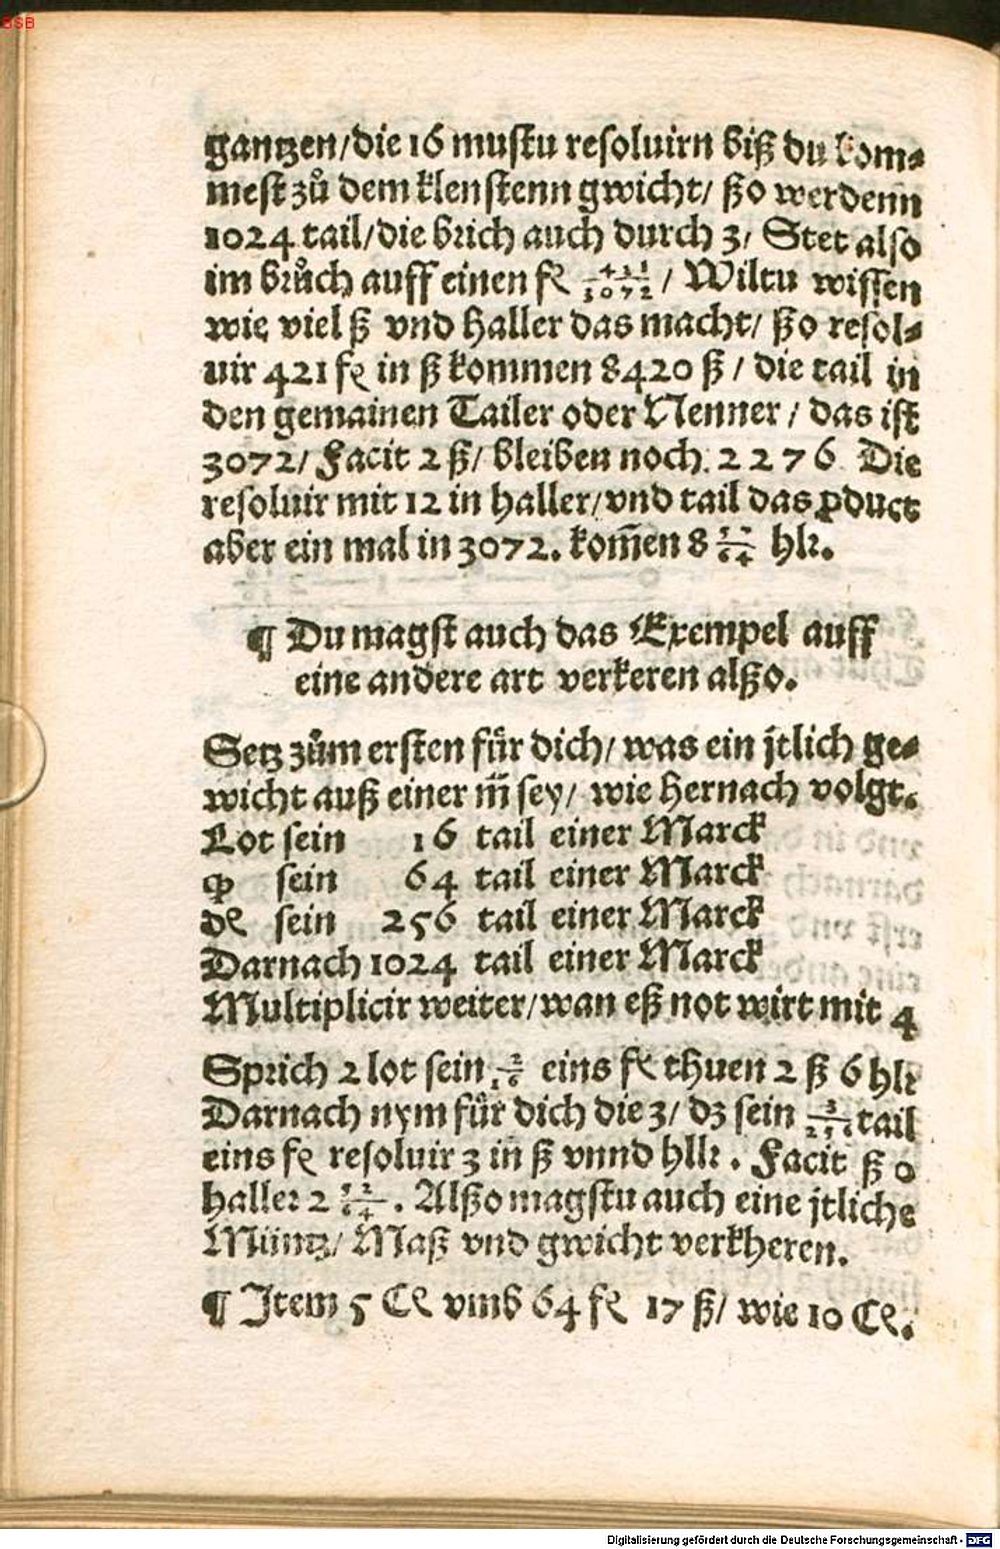 BSB
gantzen/die 16 mustu resoluirn biß du kom⸗
mest zů dem klenstenn gwicht/ ßo werdenn
1024 tail/die brich auch durch 3/ Stet also
im brůch auff einen fl 421/3072 / Wiltu wissen
wie viel ß vnd haller das macht/ ßo resol⸗
uir 421 fl in ß kommen 8420 ß / die tail in
den gemainen Tailer oder Nenner / das ist
3072/ Facit 2 ß/ bleiben noch 2276 Die
resoluir mit 12 in haller/vnd tail das ꝓduct
aber ein mal in 3072. kom̄en 8 57/64 hlr.
¶ Du magst auch das Exempel auff
eine andere art verkeren alßo.
Setz zům ersten für dich/ was ein jtlich ge⸗
wicht auß einer m̄ sey/ wie hernach volgt.
Lot sein 16 tail einer Marck
qͥ sein 64 tail einer Marck
₰ sein 256 tail einer Marck
Darnach 1024 tail einer Marck
Multiplicir weiter/wan eß not wirt mit 4
Sprich 2 lot sein 2/16 eins fl thuen 2 ß 6 hlr
Darnach nym für dich die 3/ dz sein 3/256 tail
eins fl resoluir 3 in ß vnnd hllr . Facit ß 0
haller 2 52/64 . Alßo magstu auch eine jtliche
Müntz/ Maß vnd gwicht verkheren.
¶ Item 5 Cl vmb 64 fl 17 ß/ wie 10 Cl.
Digitalisierung gefördert durch die Deutsche Forschungsgemeinschaft - DFG